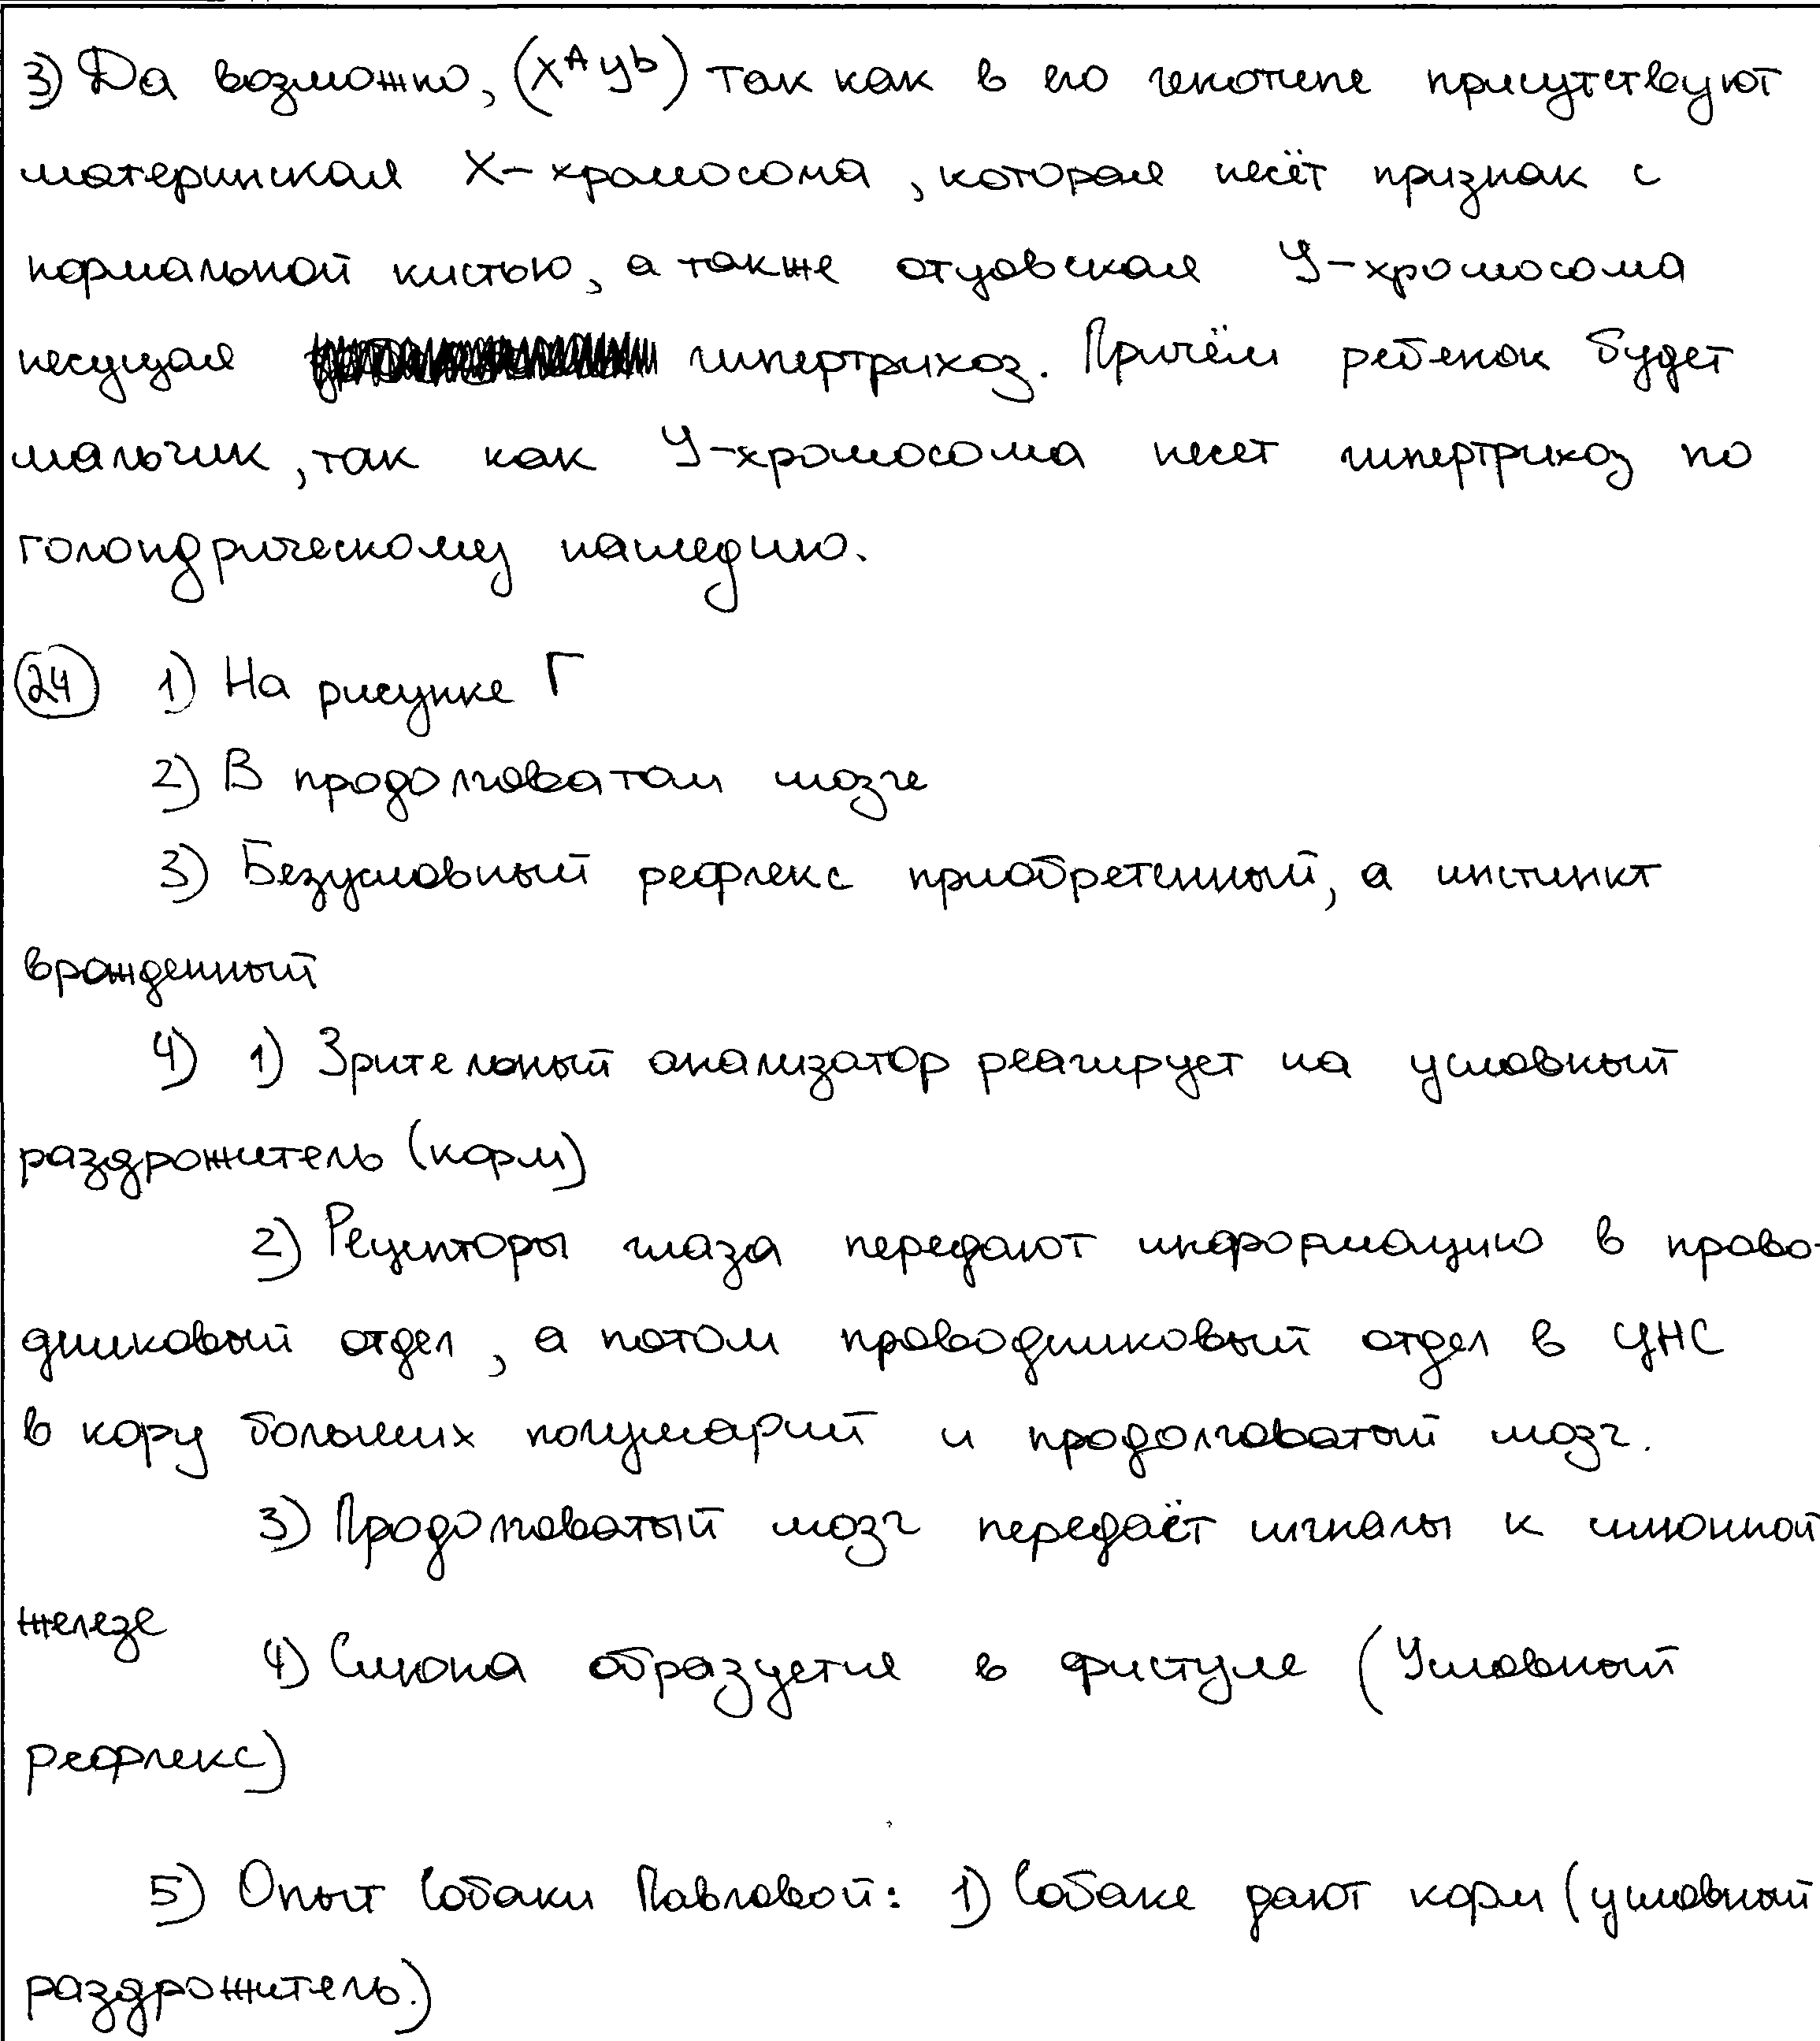 3) Да возможно, (XᴬYᵇ) так как в его генотепе присутствуют
материнская X-хромосома, которая несёт признак с
нормальной кистью, а также отцовская У-хромосома
несущая гипертрихоз. Причём ребенок будет
мальчик, так как У-хромосома несет гипертрихоз по
голондрическому наследию.
24 1) На рисунке Г
2) В продолговатом мозге
3) Безусловный рефлекс приобретенный, а инстинкт
врожденный
4) 1) Зрительный анализатор реагирует на условный
раздрожитель (корм)
2) Рецепторы глаза передают информацию в прово-
дниковый отдел, а потом проводниковый отдел в ЦНС
в кору больших полушарий и продолговатый мозг.
3) Продолговатый мозг передаёт сигналы к слюнной
железе
4) Слюна образуется в фистуле (Условный
рефлекс)
5) Опыт Собаки Павловой: 1) Собаке дают корм (условный
раздрожитель.)